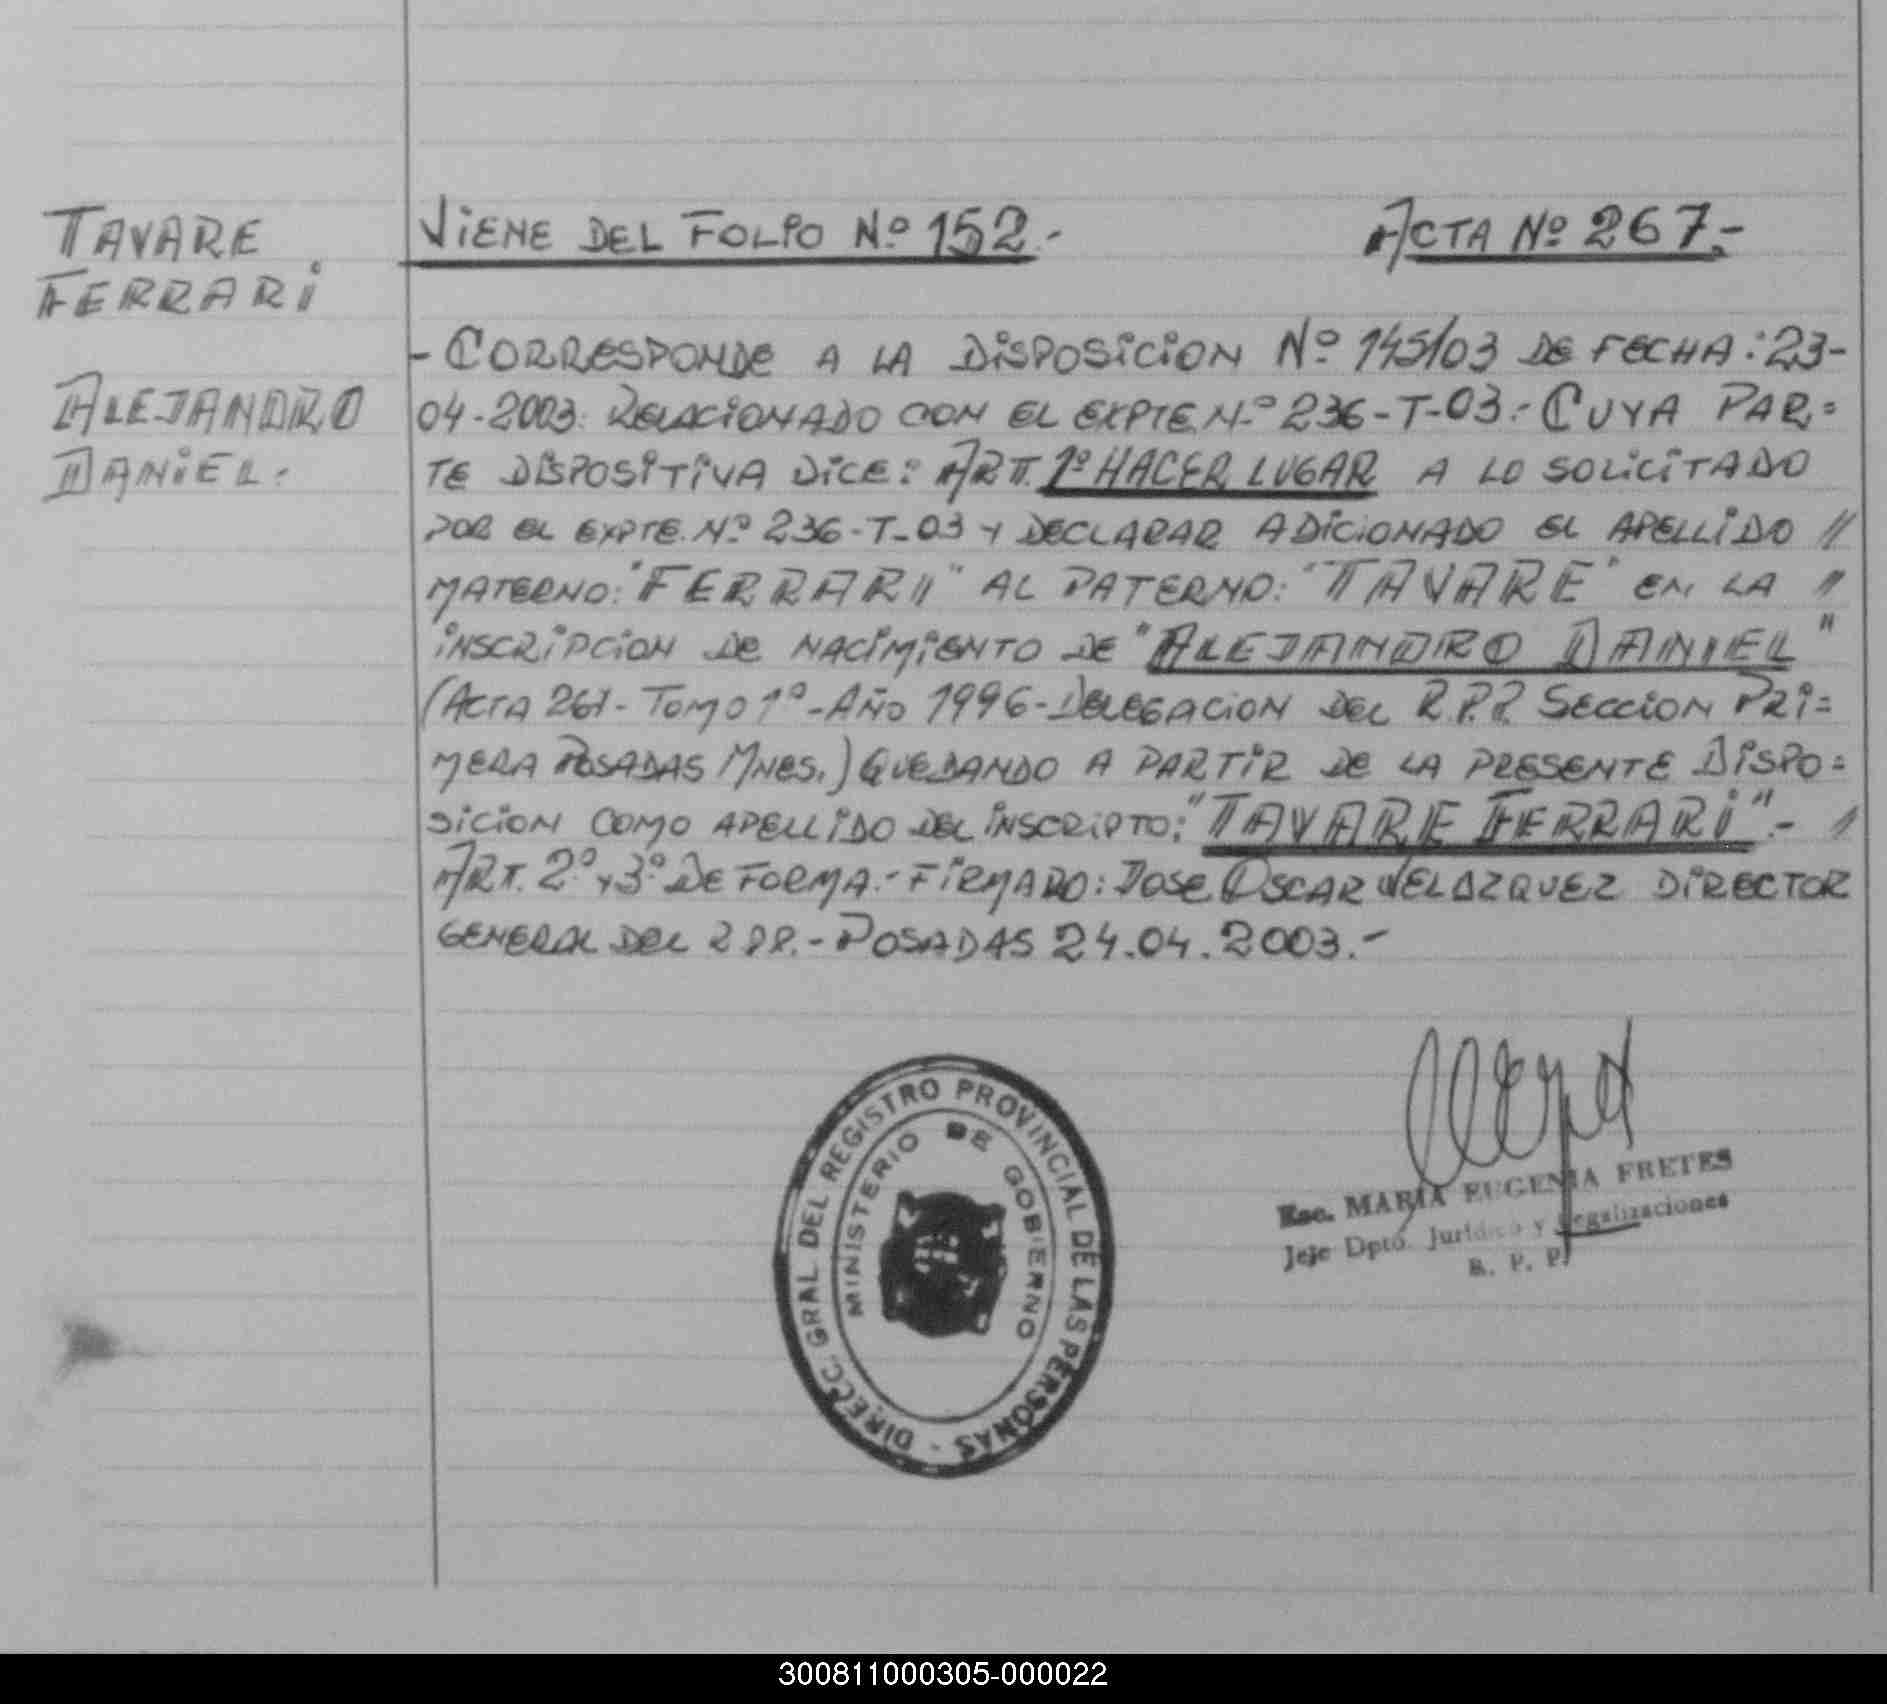 TAVARE
FERRARI
ALEJANDRO
DANIEL.-
VIENE DEL FOLIO Nº 152.-
ACTA Nº 267.-
- CORRESPONDE A LA DISPOSICION Nº 145/03 DE FECHA: 23-
04-2003. RELACIONADO CON EL EXPTE Nº 236-T-03.- CUYA PAR=
TE DISPOSITIVA DICE: ART. 1º HACER LUGAR A LO SOLICITADO
POR EL EXPTE. Nº 236-T-03 Y DECLARAR ADICIONADO EL APELLIDO //
MATERNO: "FERRARI" AL PATERNO: "TAVARE" EN LA //
INSCRIPCION DE NACIMIENTO DE "ALEJANDRO DANIEL"
(ACTA 267- TOMO 1º-AÑO 1996-DELEGACION DEL R.P.P. SECCION PRI=
MERA POSADAS MNES.) QUEDANDO A PARTIR DE LA PRESENTE DISPO=
SICION COMO APELLIDO DEL INSCRIPTO: "TAVARE FERRARI".- /
ART. 2º Y 3º DE FORMA.- FIRMADO: JOSE OSCAR VELAZQUEZ DIRECTOR
GENERAL DEL R.P.P.- POSADAS 24.04.2003.-
DIRECC. GRAL DEL REGISTRO PROVINCIAL DE LAS PERSONAS -
MINISTERIO DE GOBIERNO
Esc. MARIA EUGENIA FRETES
Jefe Dpto. Jurídico y Legalizaciones
R. P. P.
300811000305-000022